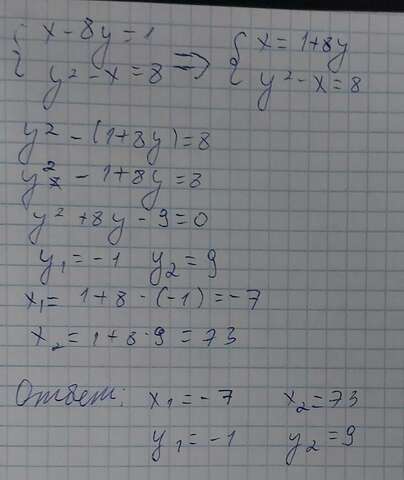 { x - 8y = 1 ⇒ { x = 1+8y
{ y² - x = 8 { y² - x = 8
y² - (1+8y) = 8
y² - 1+8y = 8
y² + 8y - 9 = 0
y₁ = -1 y₂ = 9
x₁ = 1+8·(-1) = -7
x₂ = 1+8·9 = 73
Ответ: x₁ = -7 x₂ = 73
y₁ = -1 y₂ = 9